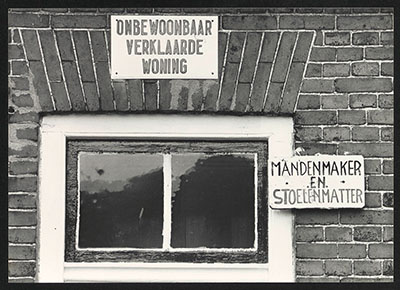 ONBEWOONBAAR
VERKLAARDE
WONING
MANDENMAKER
EN
STOELENMATTER